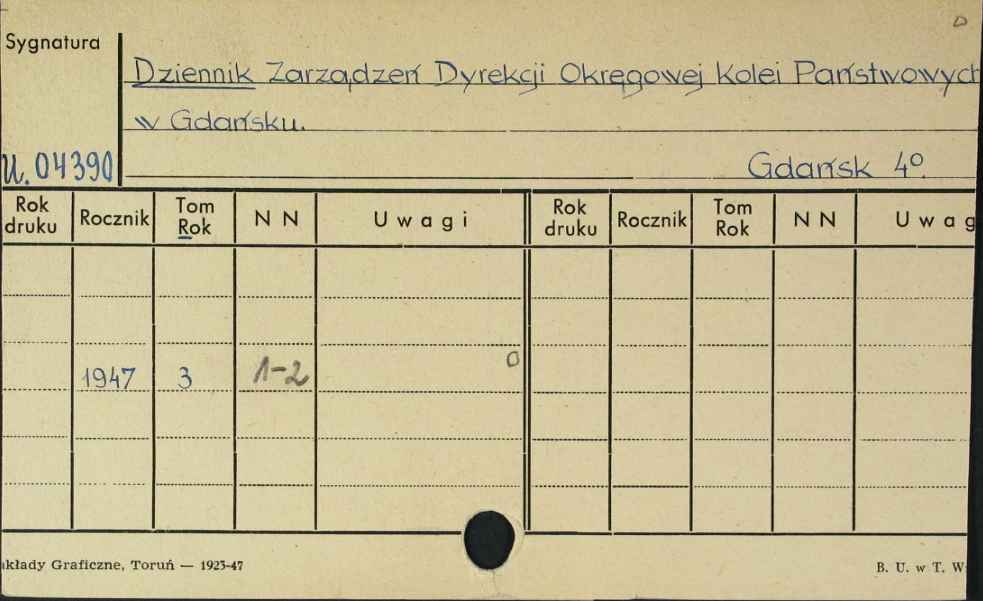 D
Sygnatura
Dziennik Zarządzeń Dyrekcji Okręgowej Kolei Państwowych
w Gdańsku.
U.04390
Gdańsk 4º.
Rok druku Rocznik Tom Rok NN Uwagi Rok druku Rocznik Tom Rok NN Uwag
1947 3 1-2 O
kłady Graficzne, Toruń — 1923-47
B. U. w T. W